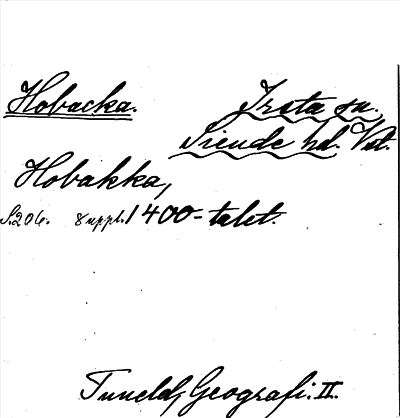 Hobacka.
Irsta sn.
Siende hd. Vst.
Hobakka,
S. 206. suppl. 1400-talet.
Tuneld, Geografi. II.